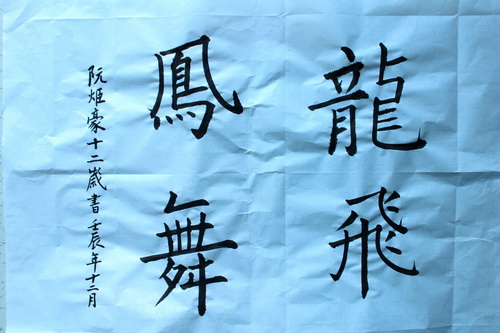 龍飛
鳳舞
阮炬豪十二歲書壬辰年十二月